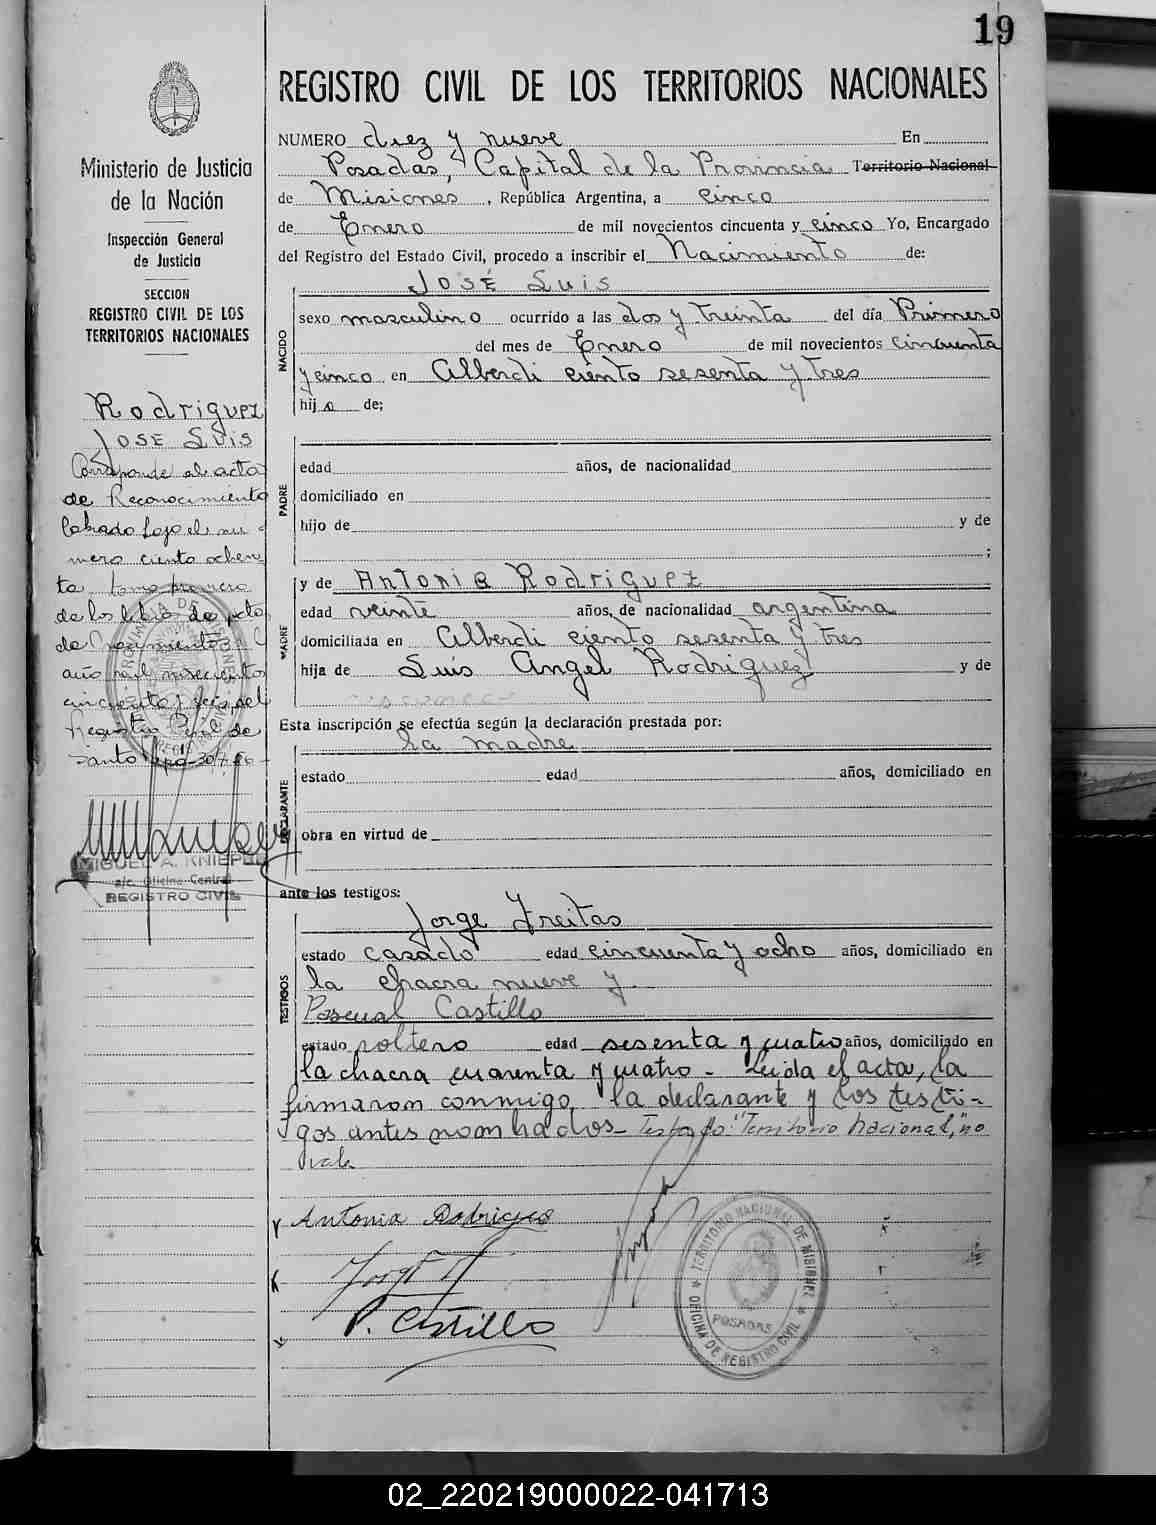 19
Ministerio de Justicia
de la Nación
Inspección General
de Justicia
SECCION
REGISTRO CIVIL DE LOS
TERRITORIOS NACIONALES
Rodriguez
José Luis
Corresponde al acta
de Reconocimiento
labrado bajo el nú
mero ciento ochen
ta tomo primero
de los libros de acta
de Nacimiento
año mil novecientos
cincuenta y seis del
Registro Civil de
Santo
MIGUEL A. KNIEPHO
a/c. Oficina Central
REGISTRO CIVIL
REGISTRO CIVIL DE LOS TERRITORIOS NACIONALES
NUMERO diez y nueve En
Posadas, Capital de la Provincia Territorio Nacional
de Misiones, República Argentina, a cinco
de Enero de mil novecientos cincuenta y cinco Yo, Encargado
del Registro del Estado Civil, procedo a inscribir el Nacimiento de:
José Luis
NACIDO
sexo masculino ocurrido a las dos y treinta del día Primero
del mes de Enero de mil novecientos cincuenta
y cinco en Alberdi ciento sesenta y tres
hijo de;
PADRE
edad años, de nacionalidad
domiciliado en
hijo de y de
;
MADRE
y de Antonia Rodriguez
edad veinte años, de nacionalidad argentina
domiciliada en Alberdi ciento sesenta y tres
hija de Luis Angel Rodriguez y de
Esta inscripción se efectúa según la declaración prestada por:
la madre
DECLARANTE
estado edad años, domiciliado en
obra en virtud de
ante los testigos:
TESTIGOS
Jorge Freitas
estado casado edad cincuenta y ocho años, domiciliado en
la chacra nueve y
Pascual Castillo
estado soltero edad sesenta y cuatro años, domiciliado en
la chacra cuarenta y cuatro - Leida el acta, la
firmaron conmigo, la declarante y los testi-
gos antes nombrados - Testado: "Territorio Nacional," no
vale
Antonia Rodrigues
P. Castillo
TERRITORIO NACIONAL DE MISIONES
POSADAS
OFICINA DE REGISTRO CIVIL
02_220219000022-041713